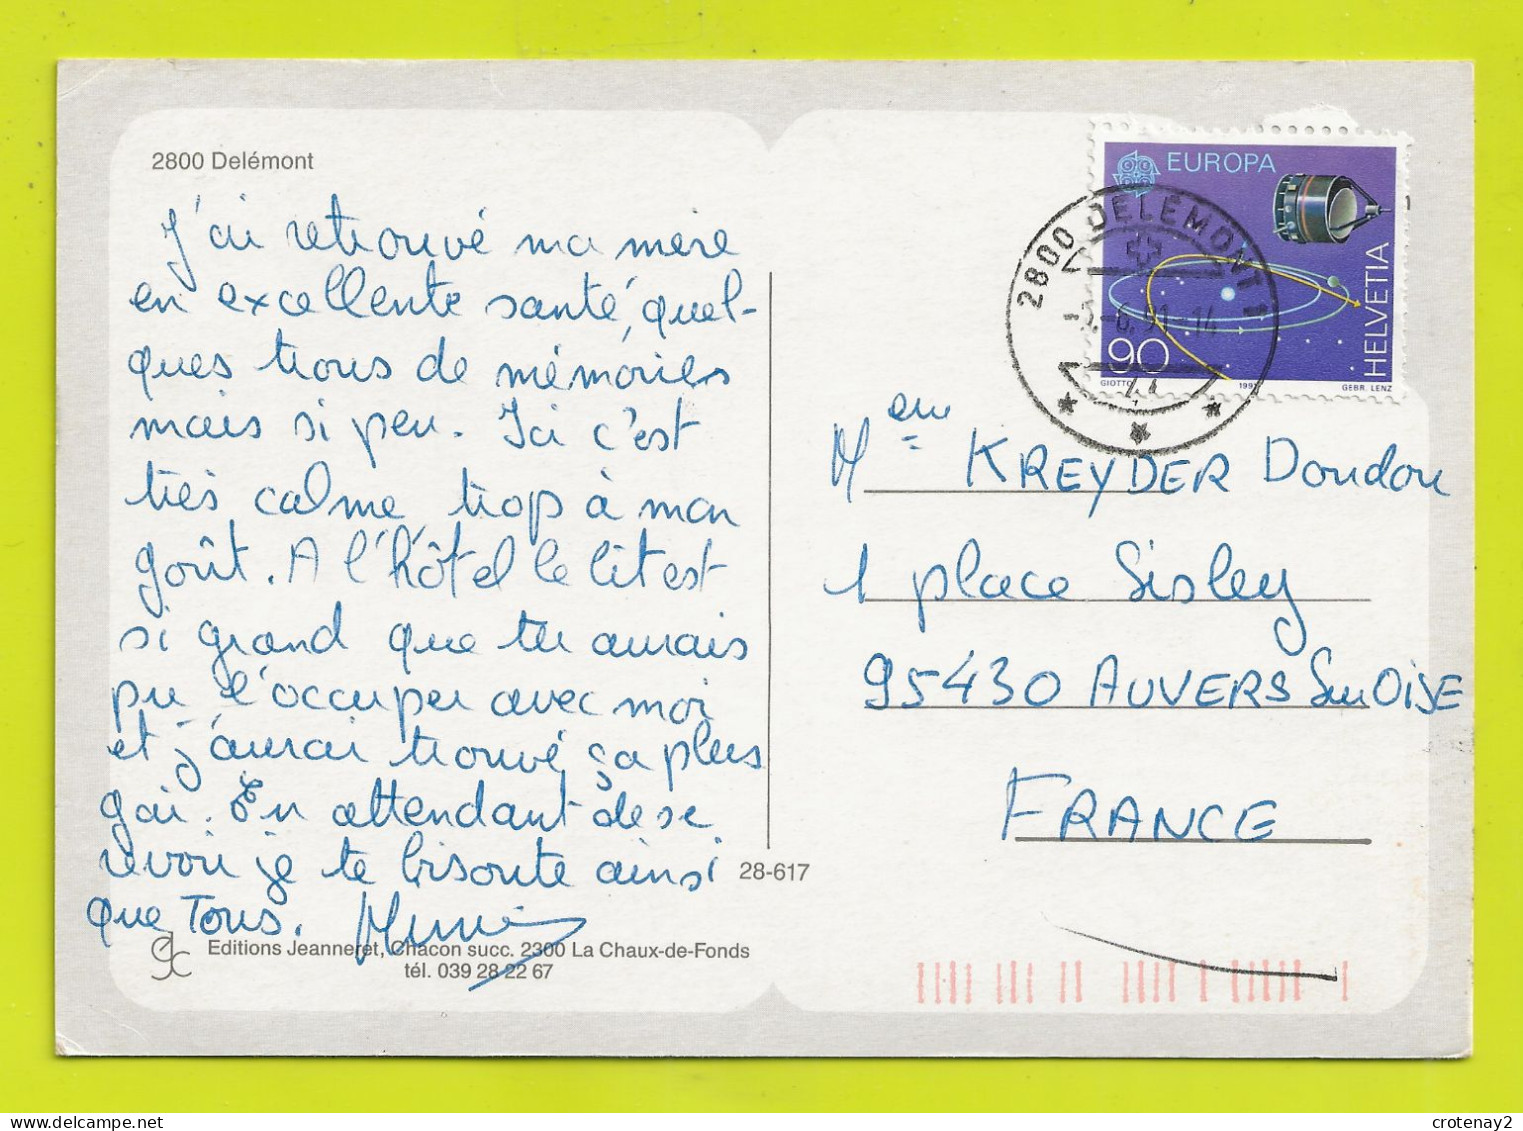 2800 Delémont
J'ai retrouvé ma mère
en excellente santé, quel-
ques trous de mémoires
mais si peu. Ici c'est
très calme trop à mon
goût. A l'hôtel le lit est
si grand que tu aurais
pu l'occuper avec moi
et j'aurai trouvé ça plus
gai. En attendant de se
revoir je te bisoute ainsi
que Tous.
Editions Jeanneret, Chacon succ. 2300 La Chaux-de-Fonds
tél. 039 28 22 67
28-617
EUROPA
HELVETIA
90
GIOTTO 1991 GEBR. LENZ
2800 DELÉMONT 1
-6.91-14
Mme KREYDER Doudou
1 place Sisley
95430 AUVERS Sur OISE
FRANCE
crotenay2